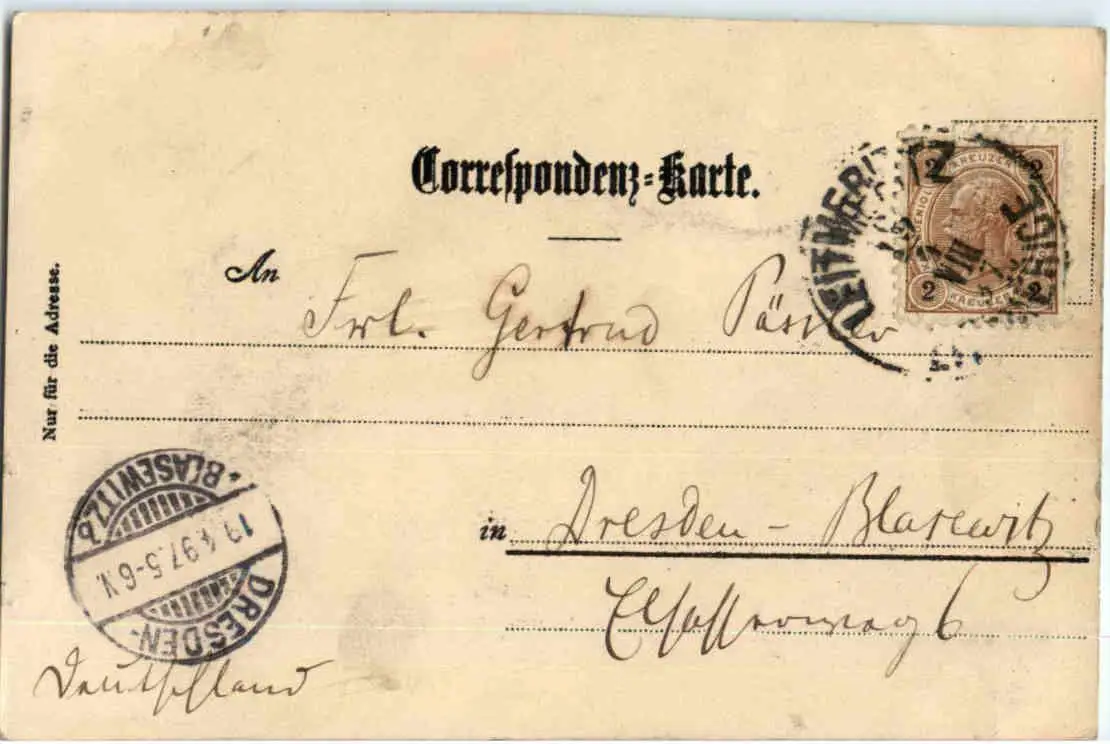 Correspondenz-Karte.
An
Frl. Gertrud
in Dresden-Blasewitz
6
Deutschland
Nur für die Adresse.
2 KREUZER 2
2 KREUZER 2
LEITMERITZ
BLASEWITZ b.
.4.97.5-6V.
DRESDEN-